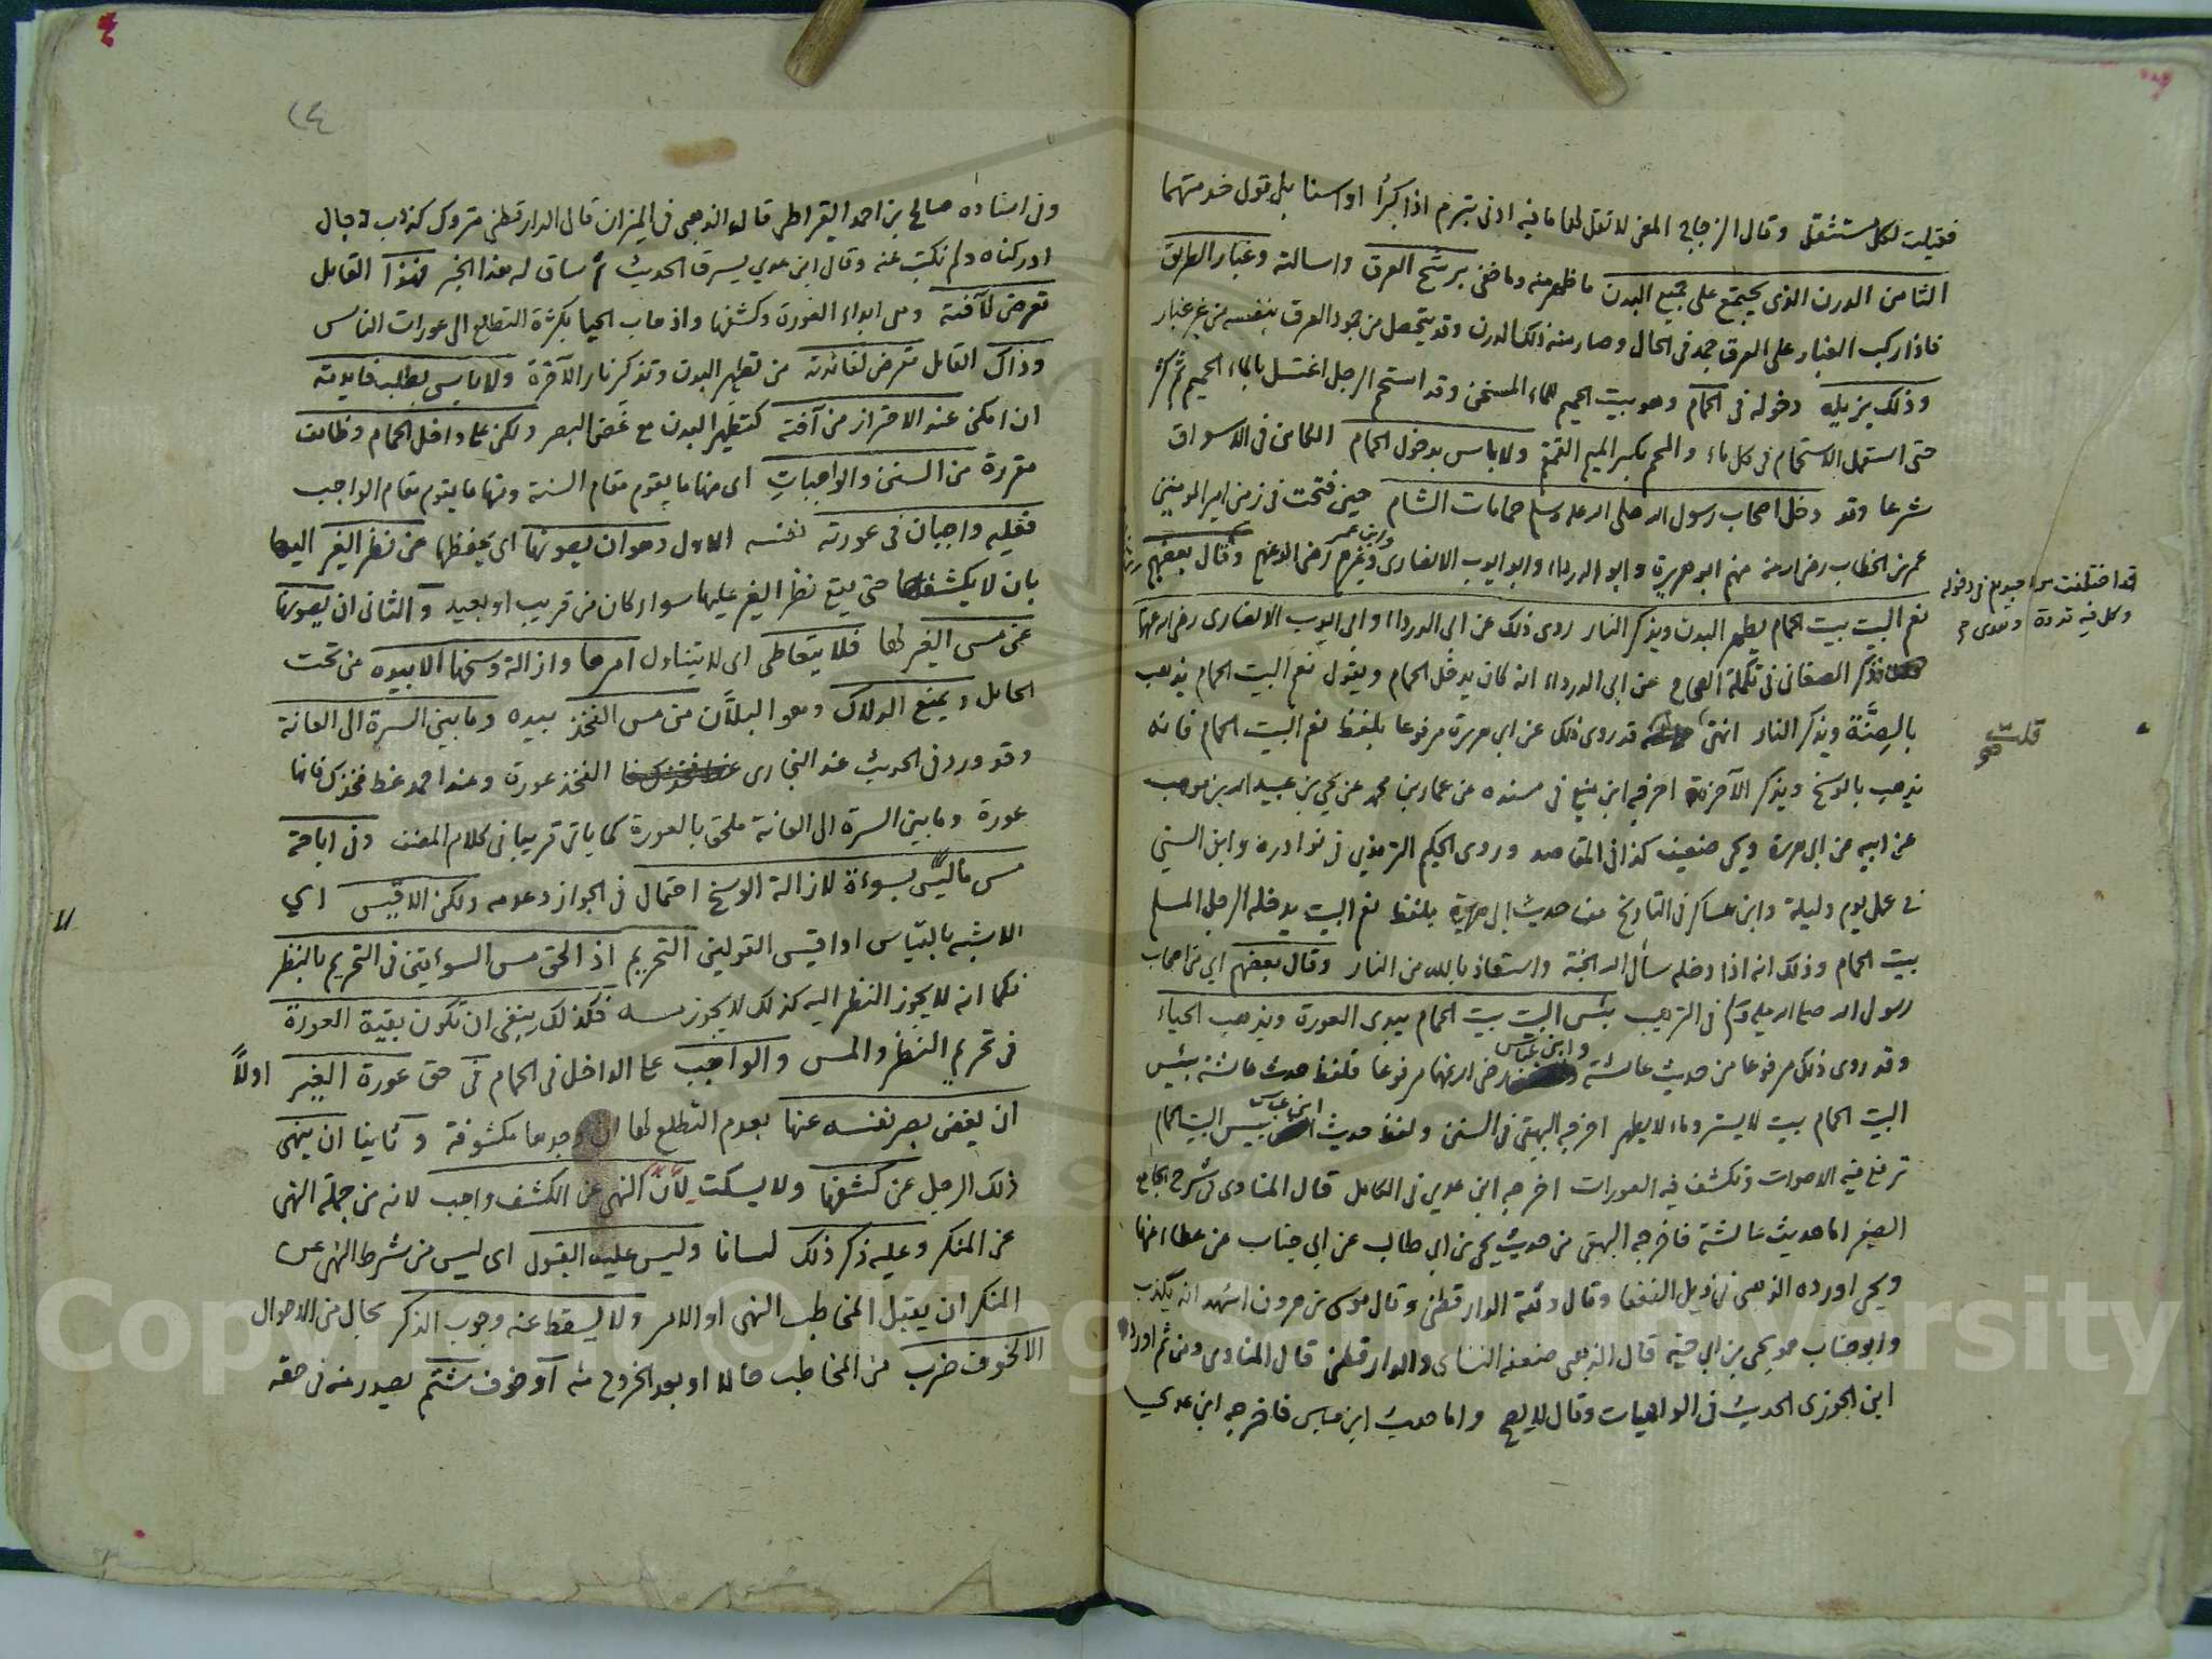 فقيلت لكل مستثقل وقال الزجاج المعنى لا تقل لهما ما فيه ادنى تبرم اذا كبرا او اسنا بل تول خدمتهما
الثامن الدرن الذى يجتمع على جميع البدن ما ظهر منه وما خفى برشح العرق واسالته وغبار الطريق
فاذا ركب الغبار على العرق جمد فى الحال وصار منه ذلك الدرن وقد يتحصل من جمود العرق بنفسه من غير غبار
وذلك يزيله دخوله فى الحمام وهو بيت الحميم للماء المسخن وقد استحم الرجل اغتسل بالماء الحميم ثم كثر
حتى استعمل الاستحمام فى كل ماء والمحم بكسر الميم القمقم ولا باس بدخول الحمام الكائن فى الاسواق
شرعا وقد دخل اصحاب رسول الله صلى الله عليه وسلم حمامات الشام حين فتحت فى زمن امير المومنين
عمر بن الخطاب رضى الله عنه منهم ابو هريرة وابو الدرداء وابو ايوب الانصارى وابن عمر وغيرهم رضى الله عنهم وقال بعضهم
نعم البيت بيت الحمام يطهر البدن ويذكر النار روى ذلك عن ابى الدرداء وابى ايوب الانصارى رضى الله عنهما
فذكر الصغانى فى تكملة الصحاح عن ابى الدرداء انه كان يدخل الحمام ويقول نعم البيت الحمام يذهب
بالصنة ويذكر النار انتهى قد روى ذلك عن ابى هريرة مرفوعا بلفظ نعم البيت الحمام فانه
يذهب بالوسخ ويذكر الآخرة اخرجه ابن منيع فى مسنده عن عمار بن محمد عن يحيى بن عبيد الله بن موهب
عن ابيه عن ابى هريرة ويحيى ضعيف كذا فى المقاصد وروى الحكيم الترمذي فى نوادره وابن السني
فى عمل يوم وليلة وابن عساكر فى التاريخ من حديث ابى هريرة بلفظ نعم البيت يدخله الرجل المسلم
بيت الحمام وذلك انه اذا دخله سأل الله الجنة واستعاذ بالله من النار وقال بعضهم اي من اصحاب
رسول الله صلى الله عليه وسلم فى الترهيب بئس البيت بيت الحمام يبدى العورة ويذهب الحياء
وقد روى ذلك مرفوعا من حديث عائشة وابن عباس رضى الله عنهما مرفوعا فلفظ حديث عائشة بئس
البيت الحمام بيت لا يستر وماء لا يطهر اخرجه البيهقى فى السنن ولفظ حديث ابن عباس بئس البيت الحمام
ترفع فيه الاصوات وتكشف فيه العورات اخرجه ابن عدي فى الكامل قال المناوى فى شرح الجامع
الصغير اما حديث عائشة فاخرجه البيهقى من حديث يحيى بن ابى طالب عن ابى جناب عن عطاء عنها
ويحيى اورده الذهبى فى ذيل الضعفا وقال وثقه الدارقطنى وقال موسى بن هرون اشهد انه يكذب
وابو جناب هو يحيى بن ابى حية قال الذهبى ضعفه النسائى والدارقطنى قال المناوى ومن ثم اورد
ابن الجوزى الحديث فى الواهيات وقال لا يصح واما حديث ابن عباس فاخرجه ابن عدي
قد اختلفت فى دخوله
وكل فيه قدوة وهدى
قلت
٢٤
وفى اسناده صالح بن احمد القيراطى قال الذهبى فى الميزان قال الدارقطنى متروك كذاب دجال
ادركناه ولم نكتب عنه وقال ابن عدي يسرق الحديث ثم ساق له هذا الخبر فهذا القائل
تعرض لآفته وهى ابداء العورة وكشفها واذهاب الحيا بكثرة التطلع الى عورات الناس
وذاك القائل تعرض لفائدته من تطهير البدن وتذكير نار الآخرة ولا باس بطلب فايدته
ان امكن عند الاحتراز من آفته كتطهير البدن مع غض البصر ولكن على داخل الحمام وظائف
مقررة من السنن والواجبات اى منها ما يقوم مقام السنة ومنها ما يقوم مقام الواجب
فعليه واجبان فى عورته نفسه الاول وهو ان يصونها اى يحفظها من نظر الغير اليها
بان لا يكشفها حتى يقع نظر الغير عليها سواء كان من قريب او بعيد والثانى ان يصونها
عن مس الغير لها فلا يتعاطى اى لا يتناول امرها وازالة وسخها الا بيده من تحت
الحايل ويمنع الدلاك وهو البلان من مس الفخذ بيده وما بين السرة الى العانة
وقد ورد فى الحديث عند البخارى الفخذ عورة وعند احمد غط فخذك فانها
عورة وما بين السرة الى العانة ملحق بالعورة كما ياتى قريبا فى كلام المصنف وفى اباحة
مس ما ليس بسوءة لازالة الوسخ احتمال فى الجواز وعدمه ولكن الاقيس اي
الاشبه بالقياس او اقيس القولين التحريم اذ الحق مس السوءتين فى التحريم بالنظر
فكما انه لا يجوز النظر اليه كذلك لا يجوز مسه فكذلك ينبغى ان تكون بقية العورة
فى تحريم النظر والمس والواجب على الداخل فى الحمام فى حق عورة الغير اولاً
ان يغض بصر نفسه عنها بعدم التطلع لها ان وجدها مكشوفة وثانيا ان ينهى
ذلك الرجل عن كشفها ولا يسكت لأن النهى عن الكشف واجب لانه من جملة النهى
عن المنكر وعليه ذكر ذلك لسانا وليس عليه القبول اى ليس من شرط النهى عن
المنكر ان يقبل المخاطب النهى او الامر ولا يسقط عنه وجوب الذكر بحال من الاحوال
الا لخوف ضرب من المخاطب حالا او بعد الخروج منه او خوف شتم يصدر منه فى حقه
Copyright © King Saud University